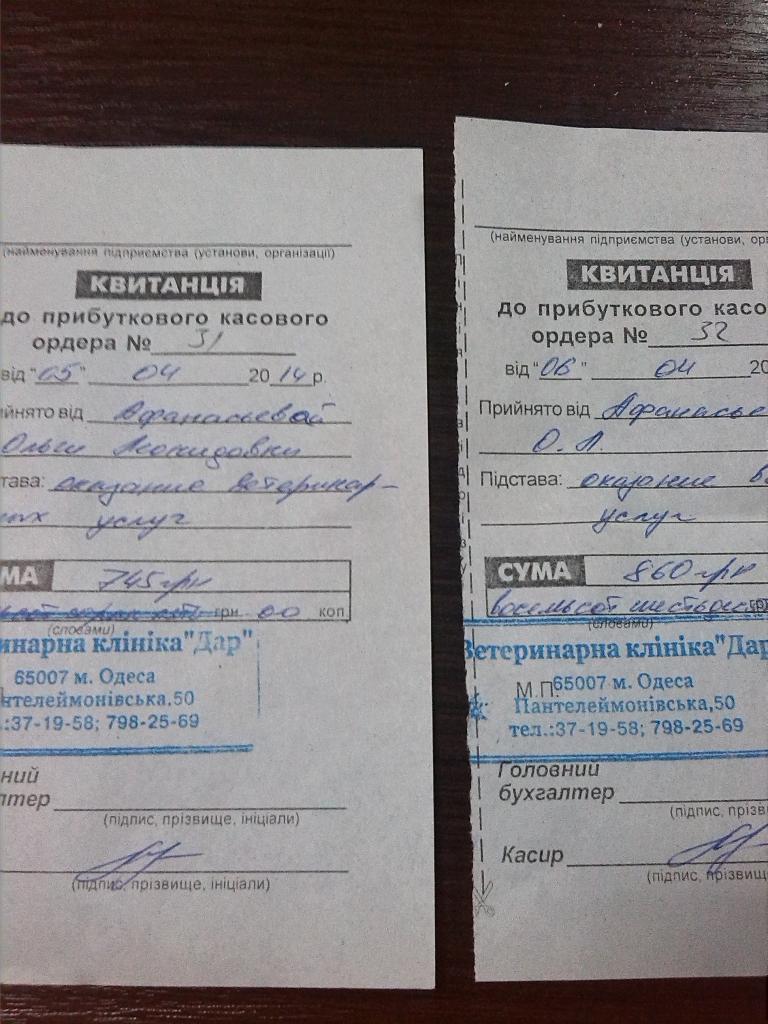 (найменування підприємства (установи, організації)
КВИТАНЦІЯ
до прибуткового касового
ордера № 31
від "05" 04 2014 р.
ийнято від Афанасьевой
Ольги
тава: оказание ветеринар-
ных услуг
МА 745 грн
грн. 00 коп
(словами)
инарна клініка"Дар"
65007 м. Одеса
нтелеймонівська,50
.:37-19-58; 798-25-69
ний
лтер
(підпис, прізвище, ініціали)
(підпис, прізвище, ініціали)
(найменування підприємства (установи, орг
КВИТАНЦІЯ
до прибуткового касо
ордера № 32
від "06" 04 20
Прийнято від Афанасье
О. Л.
Підстава: оказание в
услуг
СУМА 860 грн
восемьсот шестьдесят грн
(словами)
Ветеринарна клініка"Дар
М.П. 65007 м. Одеса
Пантелеймонівська,50
тел.:37-19-58; 798-25-69
Головний
бухгалтер
(підпис, прізв
Касир
(підпис, прізвищ